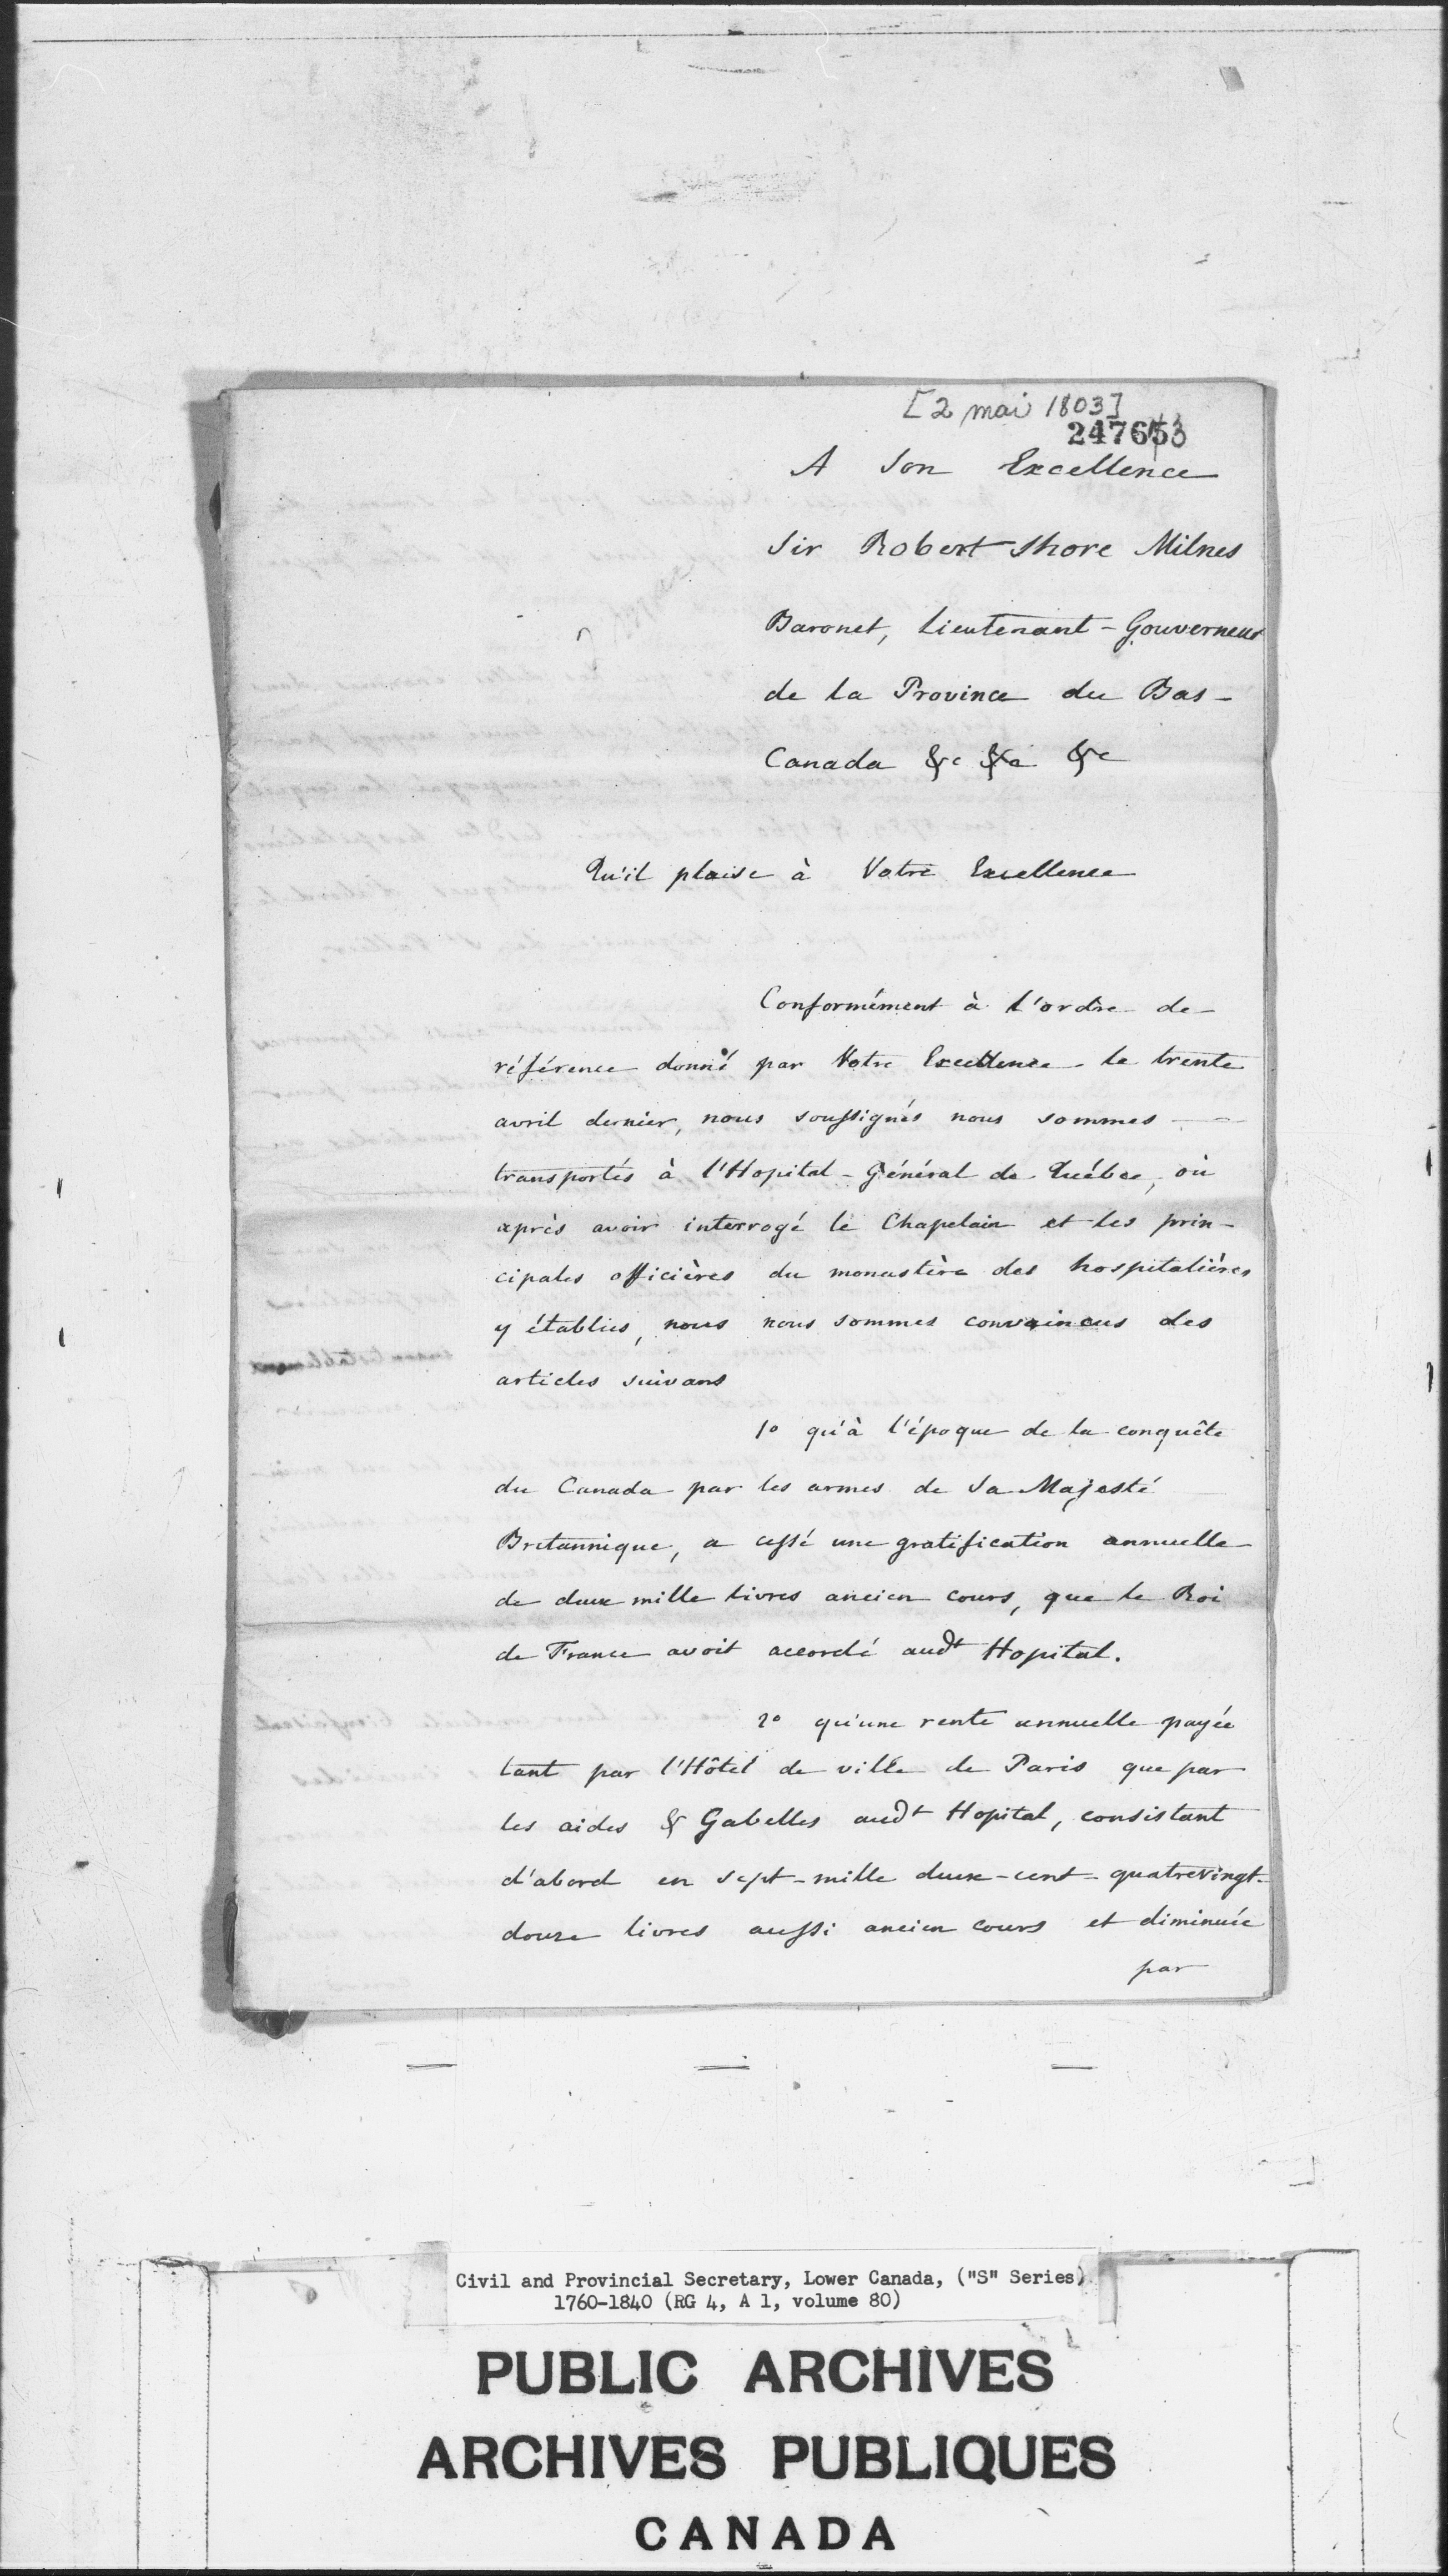 [2 mai 1803]
24765
A Son Excellence
Sir Robert Shore Milnes
Baronet, Lieutenant-Gouverneur
de la Province du Bas-
Canada &c &c &c
Qu'il plaise à Votre Excellence
Conformément à l'ordre de
référence donné par Votre Excellence le trente
avril dernier, nous soussignés nous sommes
transportés à l'Hopital-Général de Québec, où
après avoir interrogé le Chapelain et les prin-
cipales officières du monastère des hospitalières
y établies, nous nous sommes convaincus des
articles suivans
1o qu'à l'époque de la conquête
du Canada par les armes de Sa Majesté
Britannique, a cessé une gratification annuelle
de deux mille livres ancien cours, que le Roi
de France avoit accordé audt Hopital.
2o qu'une rente annuelle payée
tant par l'Hôtel de ville de Paris que par
les aides & Gabelles audt Hopital, consistant
d'abord en sept-mille deux-cent-quatrevingt-
douze livres aussi ancien cours et diminuée
par
Civil and Provincial Secretary, Lower Canada, ("S" Series)
1760-1840 (RG 4, A 1, volume 80)
PUBLIC ARCHIVES
ARCHIVES PUBLIQUES
CANADA